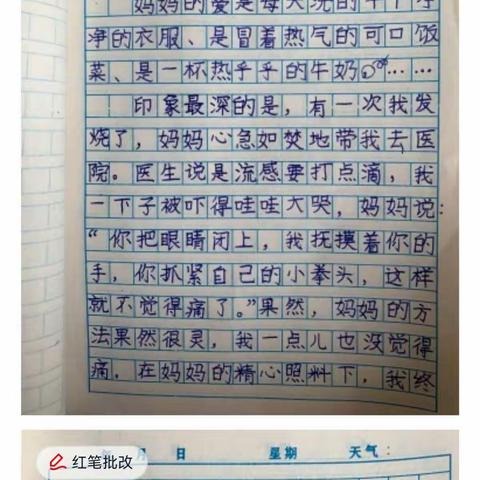 妈妈的爱是每天洗的干干净
净的衣服、是冒着热气的可口饭
菜、是一杯热乎乎的牛奶……
印象最深的是，有一次我发
烧了，妈妈心急如焚地带我去医
院。医生说是流感要打点滴，我
一下子被吓得哇哇大哭，妈妈说：
“你把眼睛闭上，我抚摸着你的
手，你抓紧自己的小拳头，这样
就不觉得痛了。”果然，妈妈的方
法果然很灵，我一点儿也没觉得
痛，在妈妈的精心照料下，我终
月 日 星期 天气：
红笔批改